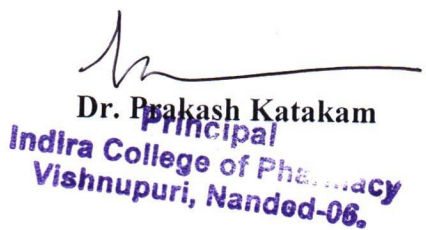 Dr. Prakash Katakam
Principal
Indira College of Pharmacy
Vishnupuri, Nanded-06.